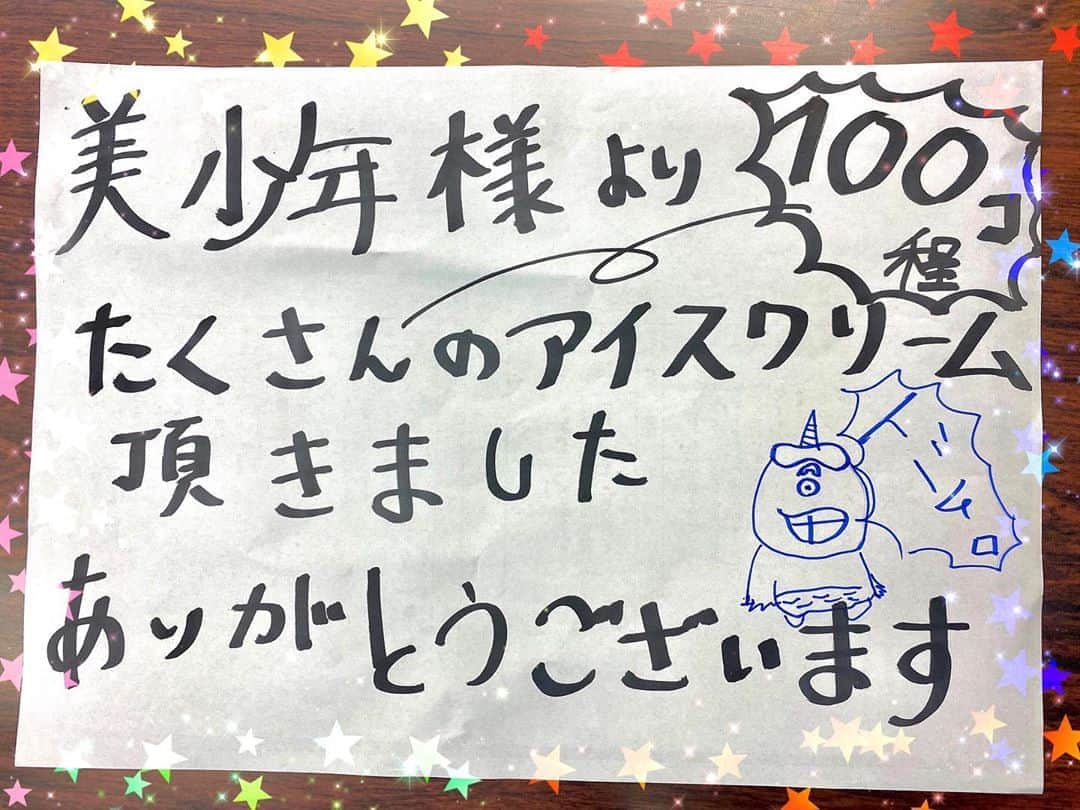 美少年様より
100コ
程
たくさんのアイスクリーム
頂きました
ありがとうございます